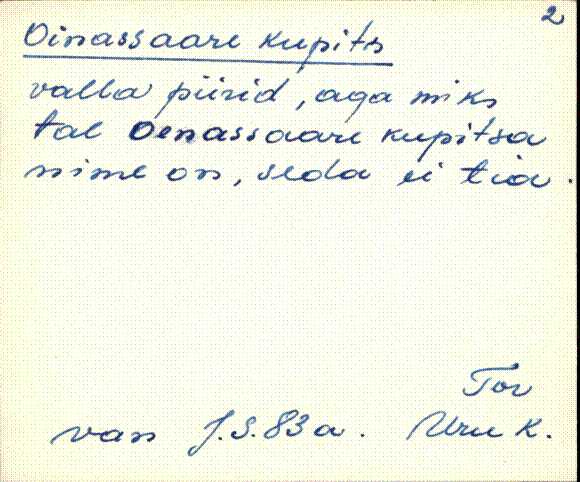 2
Oinassaare kupits
valla piirid, aga miks
tal Oenassaare kupitsa
nime on, seda ei tia.
Tor
van J.S. 83 a. Uru K.